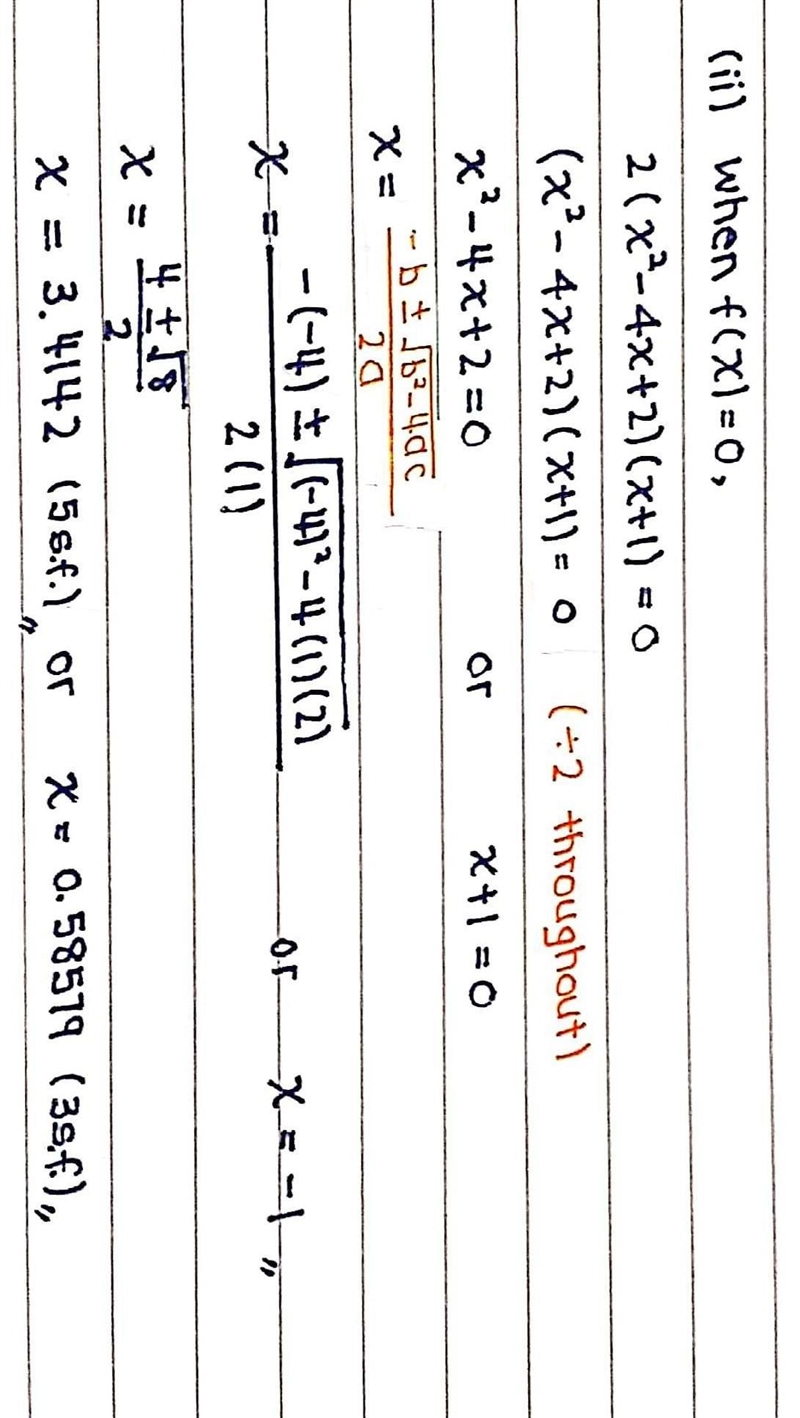 (ii) when f(x)=0,
2(x²-4x+2)(x+1) = 0
(x²-4x+2)(x+1) = 0 (÷2 throughout)
x²-4x+2=0 or x+1=0
x = -b ± √b²-4ac / 2a
x = -(-4) ± √(-4)²-4(1)(2) / 2(1) or x = -1 〃
x = 4 ± √8 / 2
x = 3.4142 (5s.f.)〃 or x = 0.58579 (3s.f.)〃